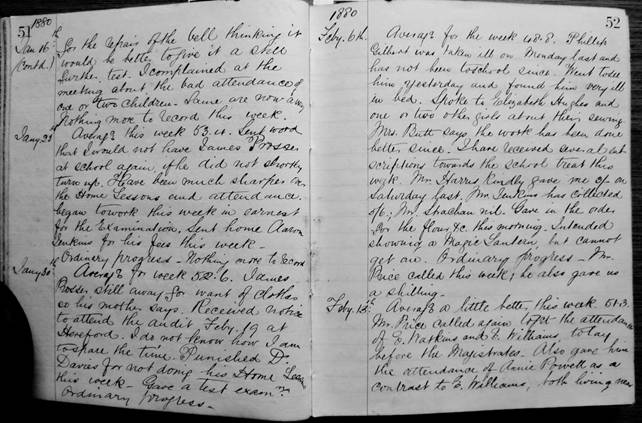 51
1880
Jan 16th
(Contd.)
for the repairs of the bell thinking it
would be better to give it a still
further test. I complained at the
meeting about the bad attendance of
one or two children. Some are now away
Nothing more to record this week.
Jany 23rd
Averag? this week 53.4. Sent word
that I would not have James Prosser
at school again, if he did not shortly
turn up. Have been much sharper on
the Home Lessons and attendance.
began to work this week in earnest
for the Examination, sent home Aaron
Jenkins for his fees this week—
Ordinary progress— Nothing more to record
Jany 30th
Averag? for week 52.6. James
Prosser still away for want of clothes
so his mother says. Received notice
to attend the audit Feby. 19 at
Hereford. I do not know how I am
to spare the time. Punished D.
Davies for not doing his Home Lesson
this week— Gave a test examn.
Ordinary progress.—
1880
52
Feby. 6th.
Averag? for the week 48.8. Phillip
Gilbert was taken ill on Monday last and
has not been to school since. Went to see
him yesterday and found him very ill
in bed. Spoke to Elizabeth Hughes and
one or two other girls about their sewing
Mrs. Butt says the work has been done
better since. I have received several sub
scriptions towards the school treat this
week. Mr. Harris kindly gave me 5/- on
Saturday last. Mr. Jenkins has collected
9/6; Mr. Strachan nil. Gave in the order
for the flour &c. this morning. Intended
showing a Magic Lantern, but cannot
get one. Ordinary progress— Mr.
Price called this week; he also gave us
a shilling.—
Feby. 13th.
Averag? a little better, this week 51.3.
Mr. Price called again to get the attendance
of E. Watkins and E. Williams, to lay
before the Magistrates— Also gave him
the attendance of Annie Powell as a
contrast to E. Williams, both living near